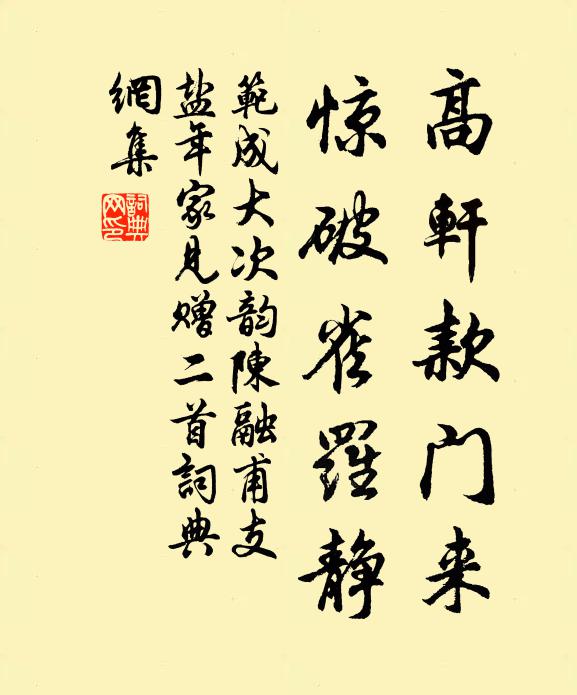 高軒款门来
惊破雀羅静
範成大次韵陳融甫支
盐年家见赠二首詞典
網集
詞典
网印